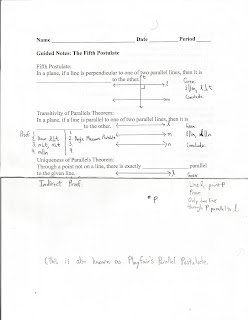 Name ____________ Date ________ Period ____
Guided Notes: The Fifth Postulate
Fifth Postulate:
In a plane, if a line is perpendicular to one of two parallel lines, then it is
____________ to the other.
t
l
m
Given:
l//m, l⊥t
Conclude:
Transitivity of Parallels Theorem:
In a plane, if a line is parallel to one of two parallel lines, then it is
____________ to the other.
l
m
n
Given:
Conclude:
Proof
1.
2.
3.
4. m//n
1.
2.
3.
4.
Uniqueness of Parallels Theorem:
Through a point not on a line, there is exactly ____________ parallel
to the given line.
l
Given:
Line l, point P
Prove:
Only one line
through P parallel to l.
Indirect Proof:
P
(This is also known as Playfair's Parallel Postulate.